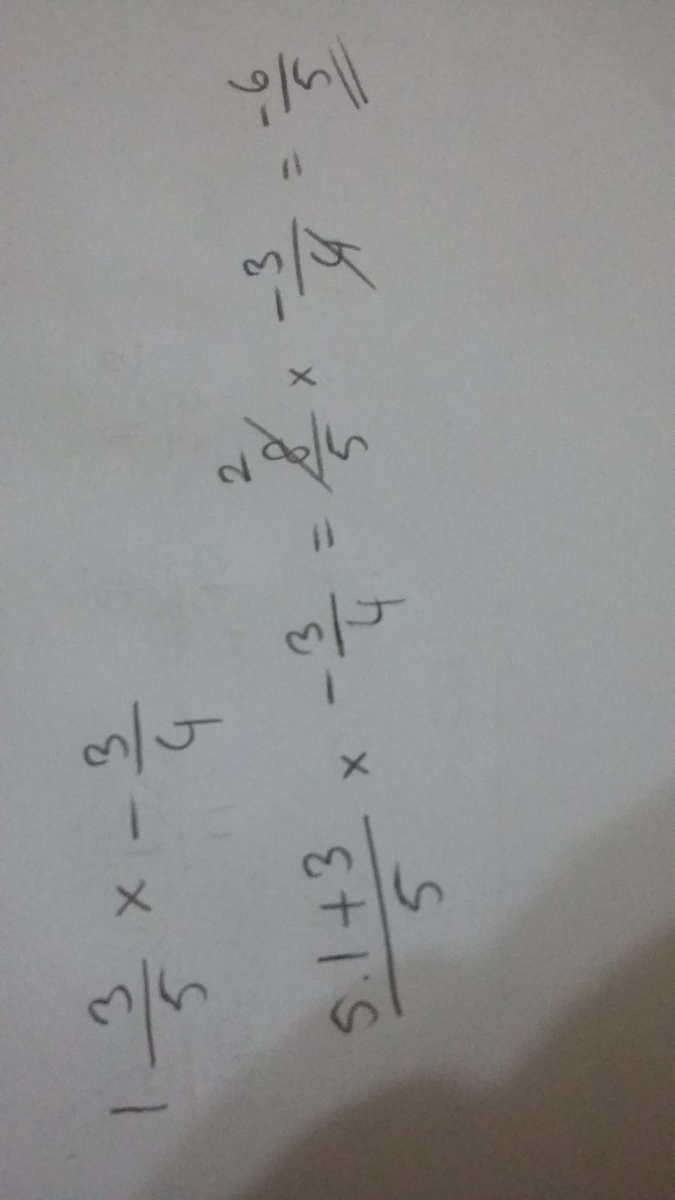 1 3/5 × - 3/4
5.1+3/5 × - 3/4 = 2 8/5 × - 3/4 = - 6/5